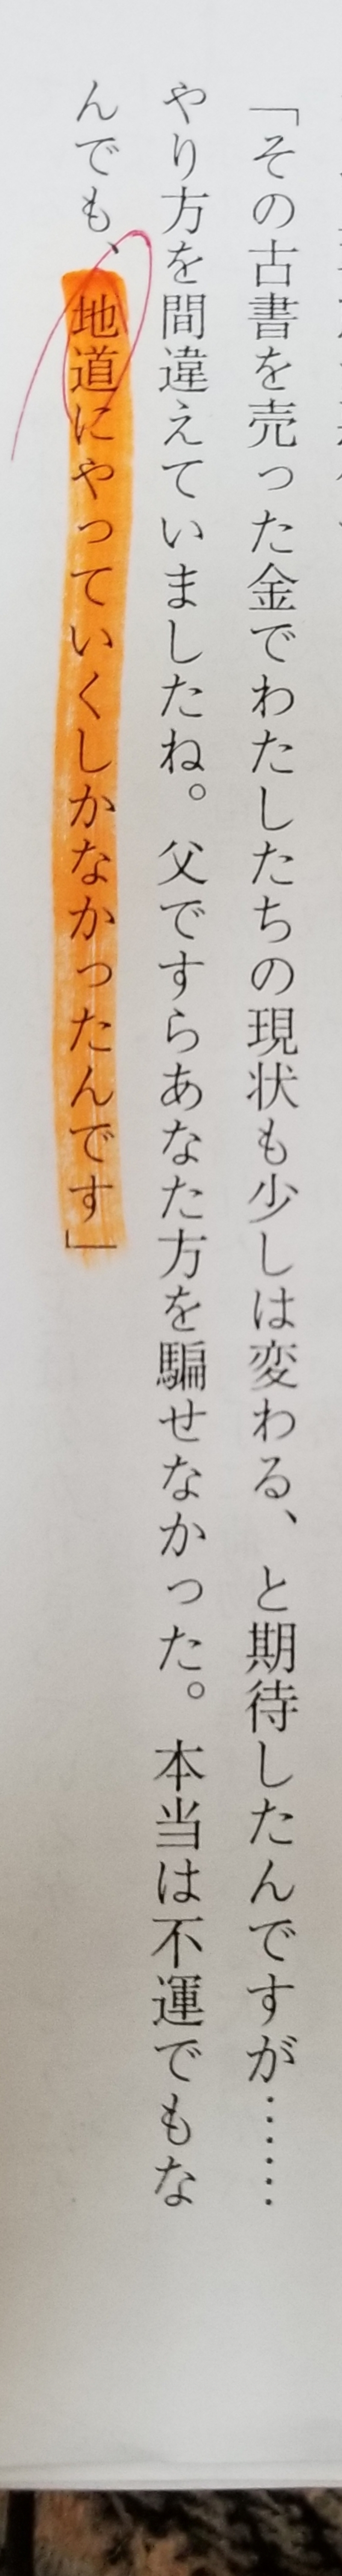 「その古書を売った金でわたしたちの現状も少しは変わる、と期待したんですが……
やり方を間違えていましたね。父ですらあなた方を騙せなかった。本当は不運でもな
んでも、地道にやっていくしかなかったんです」